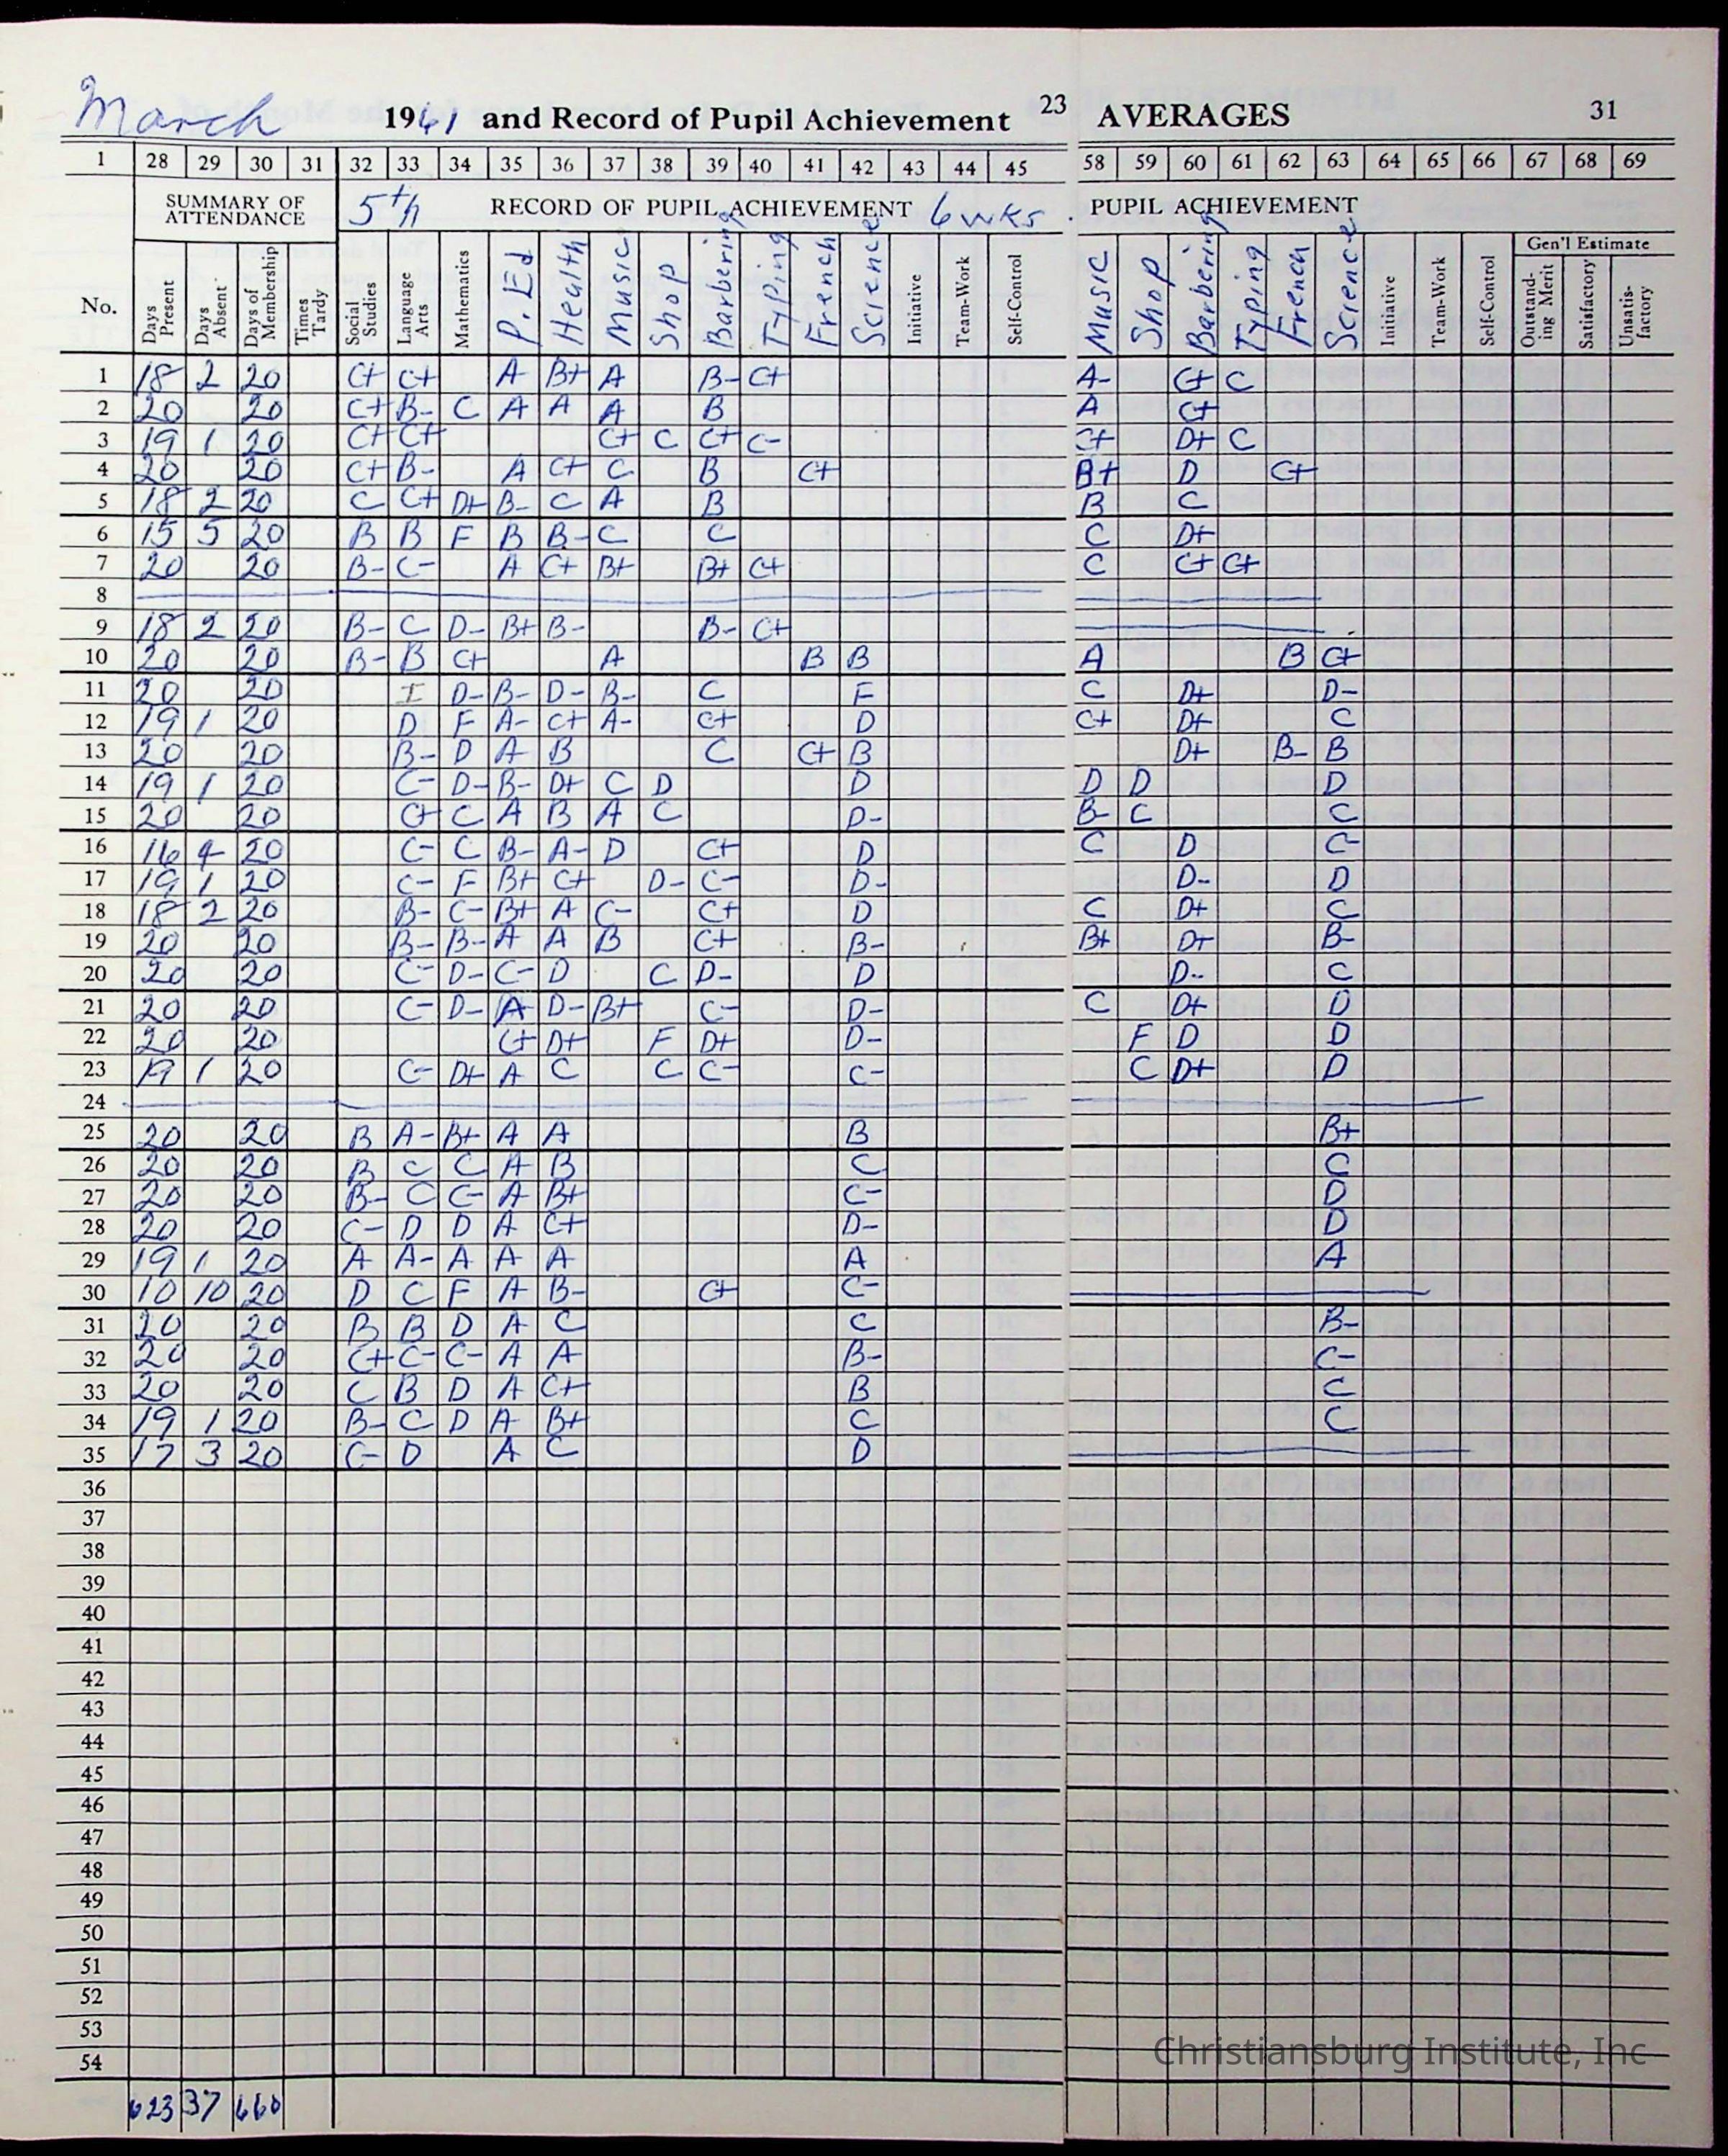 March 1961 and Record of Pupil Achievement 23 AVERAGES 31
1 28 29 30 31 32 33 34 35 36 37 38 39 40 41 42 43 44 45 58 59 60 61 62 63 64 65 66 67 68 69
SUMMARY OF ATTENDANCE 5th RECORD OF PUPIL ACHIEVEMENT 6 wks. PUPIL ACHIEVEMENT
Gen'l Estimate
No. Days Present Days Absent Days of Membership Times Tardy Social Studies Language Arts Mathematics P. Ed Health Music Shop Barbering Typing French Science Initiative Team-Work Self-Control Music Shop Barbering Typing French Science Initiative Team-Work Self-Control Outstanding Merit Satisfactory Unsatisfactory
1 18 2 20 C+ C+ A B+ A B- C+ A- C+ C
2 20 20 C+ B- C A A A B A C+
3 19 1 20 C+ C+ C+ C C+ C- C+ D+ C
4 20 20 C+ B- A C+ C B C+ B+ D C+
5 18 2 20 C C+ D+ B- C A B B C
6 15 5 20 B B F B B- C C C D+
7 20 20 B- C- A C+ B+ B+ C+ C C+ C+
8
9 18 2 20 B- C D- B+ B- B- C+
10 20 20 B- B C+ A B B A B C+
11 20 20 I D- B- D- B- C F C D+ D-
12 19 1 20 D F A- C+ A- C+ D C+ D+ C
13 20 20 B- D A B C C+ B D+ B- B
14 19 1 20 C- D- B- D+ C D D D D D
15 20 20 C+ C A B A C D- B- C C
16 16 4 20 C- C B- A- D C+ D C D C-
17 19 1 20 C- F B+ C+ D- C- D- D- D
18 18 2 20 B- C- B+ A C- C+ D C D+ C
19 20 20 B- B- A A B C+ B- B+ D+ B-
20 20 20 C- D- C- D C D- D D- C
21 20 20 C- D- A D- B+ C- D- C D+ D
22 20 20 C+ D+ F D+ D- F D D
23 19 1 20 C- D+ A C C C- C- C D+ D
24
25 20 20 B A- B+ A A B B+
26 20 20 B C C A B C C
27 20 20 B- C C- A B+ C- D
28 20 20 C- D D A C+ D- D
29 19 1 20 A A- A A A A A
30 10 10 20 D C F A B- C+ C-
31 20 20 B B D A C C B-
32 20 20 C+ C- C- A A B- C-
33 20 20 C B D A C+ B C
34 19 1 20 B- C D A B+ C C
35 17 3 20 C- D A C D
36
37
38
39
40
41
42
43
44
45
46
47
48
49
50
51
52
53
54
623 37 660
Christiansburg Institute, Inc